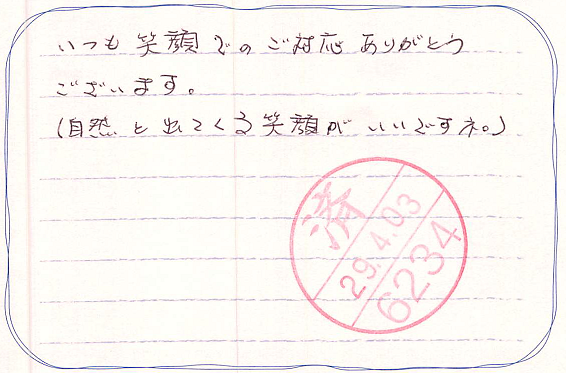 いつも笑顔でのご対応ありがとう
ございます。
(自然と出てくる笑顔がいいですネ。)
済
29.4.03
6234